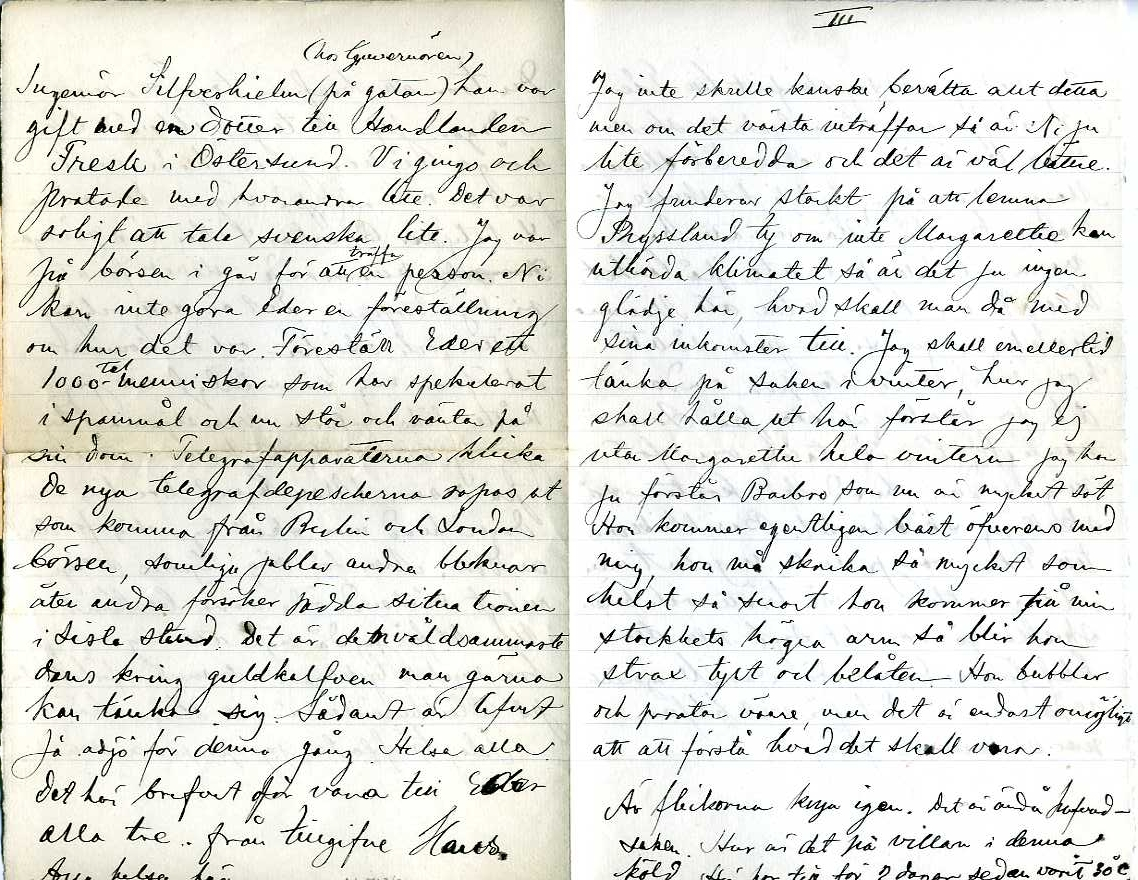 (hos Guvernören)
Ingeniör Silfverhielm (på gatan) han var
gift med en dotter till Handlanden
Fresk i Östersund. Vi gingo och
pratade med hvarandra lite. Det var
roligt att tala svenska lite. Jag var
på börsen i går för att träffa en person. Ni
kan inte göra Eder en föreställning
om hur det var. Föreställ Eder ett
1000-tal menniskor som har spekulerat
i spanmål och nu står och väntar på
sin dom. Telegrafapparaterna klicka
de nya telegrafdepescherna ropas ut
som komma från Berlin och London
börsen, somliga jublar andra bleknar
åter andra försöker rädda situationen
i sista stund. Det är den våldsammaste
dans kring guldkalfven man gärna
kan tänka sig. Sådant är lifvet
Ja adjö för denna gång. Helsa alla.
Det här brefvet får vara till Eder
alla tre. från tillgifne Hans.
helsa här
III
Jag inte skulle kanske berätta allt detta
men om det värsta inträffar så är Ni ju
lite förberedda och det är väl bättre.
Jag funderar starkt på att lemna
Ryssland ty om inte Margarethe kan
uthärda klimatet så är det ju ingen
glädje här, hvad skall man då med
sina inkomster till. Jag skall emellertid
tänka på saken i vinter, hur jag
skall hålla ut här förstår jag ej
utan Margarethe hela vintern jag har
ju förstås Barbro som nu är mycket söt
Hon kommer egentligen bäst öfverens med
mig, hon må skrika så mycket som
helst så snart hon kommer på min
högra arm så blir hon
strax tyst och belåten. Hon bubblar
och pratar värre, men det är endast omöjligt
att att förstå hvad det skall vara.
Är flickorna krya igen. Det är ändå hufvud-
saken. Hur är det på villan i denna
köld. Här har till för 2 dagar sedan varit 30° C.